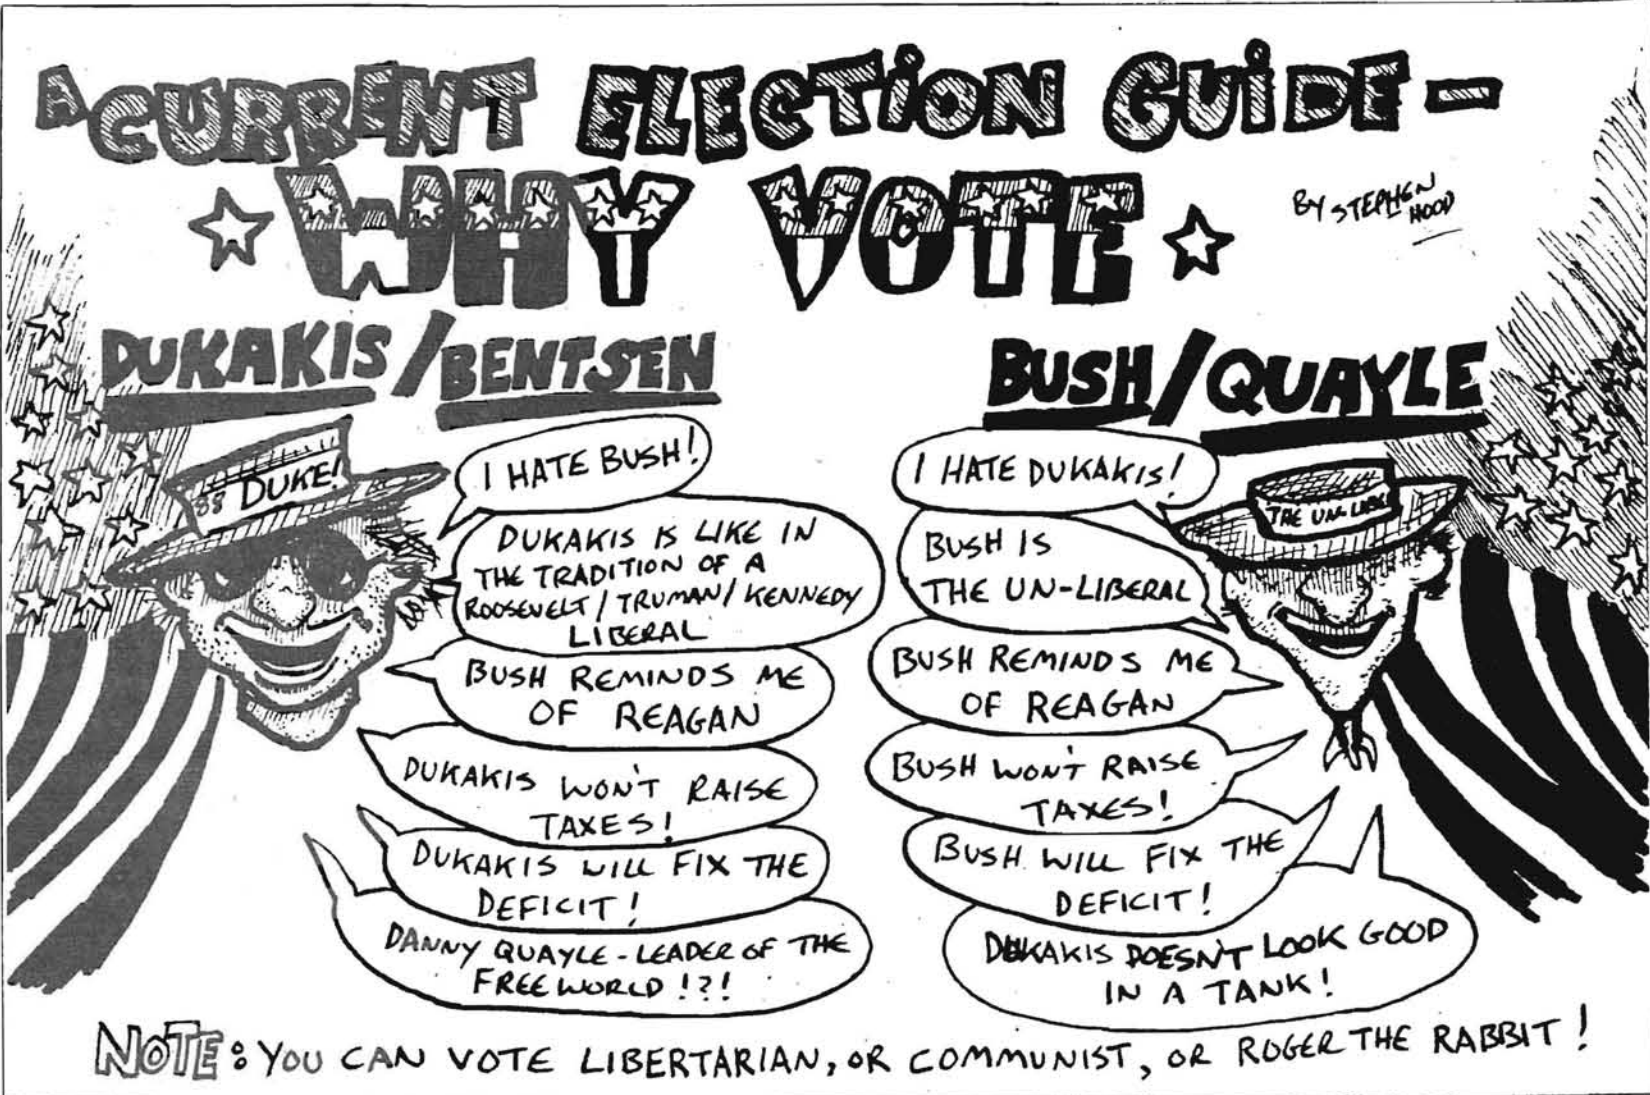 A CURRENT ELECTION GUIDE -
WHY VOTE
BY STEPHEN
HOOD
DUKAKIS/BENTSEN
88 DUKE!
I HATE BUSH!
DUKAKIS IS LIKE IN
THE TRADITION OF A
ROOSEVELT/TRUMAN/KENNEDY
LIBERAL
BUSH REMINDS ME
OF REAGAN
DUKAKIS WON'T RAISE
TAXES!
DUKAKIS WILL FIX THE
DEFICIT!
DANNY QUAYLE - LEADER OF THE
FREE WORLD!?!
BUSH/QUAYLE
THE UN-LIBERAL
I HATE DUKAKIS!
BUSH IS
THE UN-LIBERAL
BUSH REMINDS ME
OF REAGAN
BUSH WON'T RAISE
TAXES!
BUSH WILL FIX THE
DEFICIT!
DUKAKIS DOESN'T LOOK GOOD
IN A TANK!
NOTE: YOU CAN VOTE LIBERTARIAN, OR COMMUNIST, OR ROGER THE RABBIT!